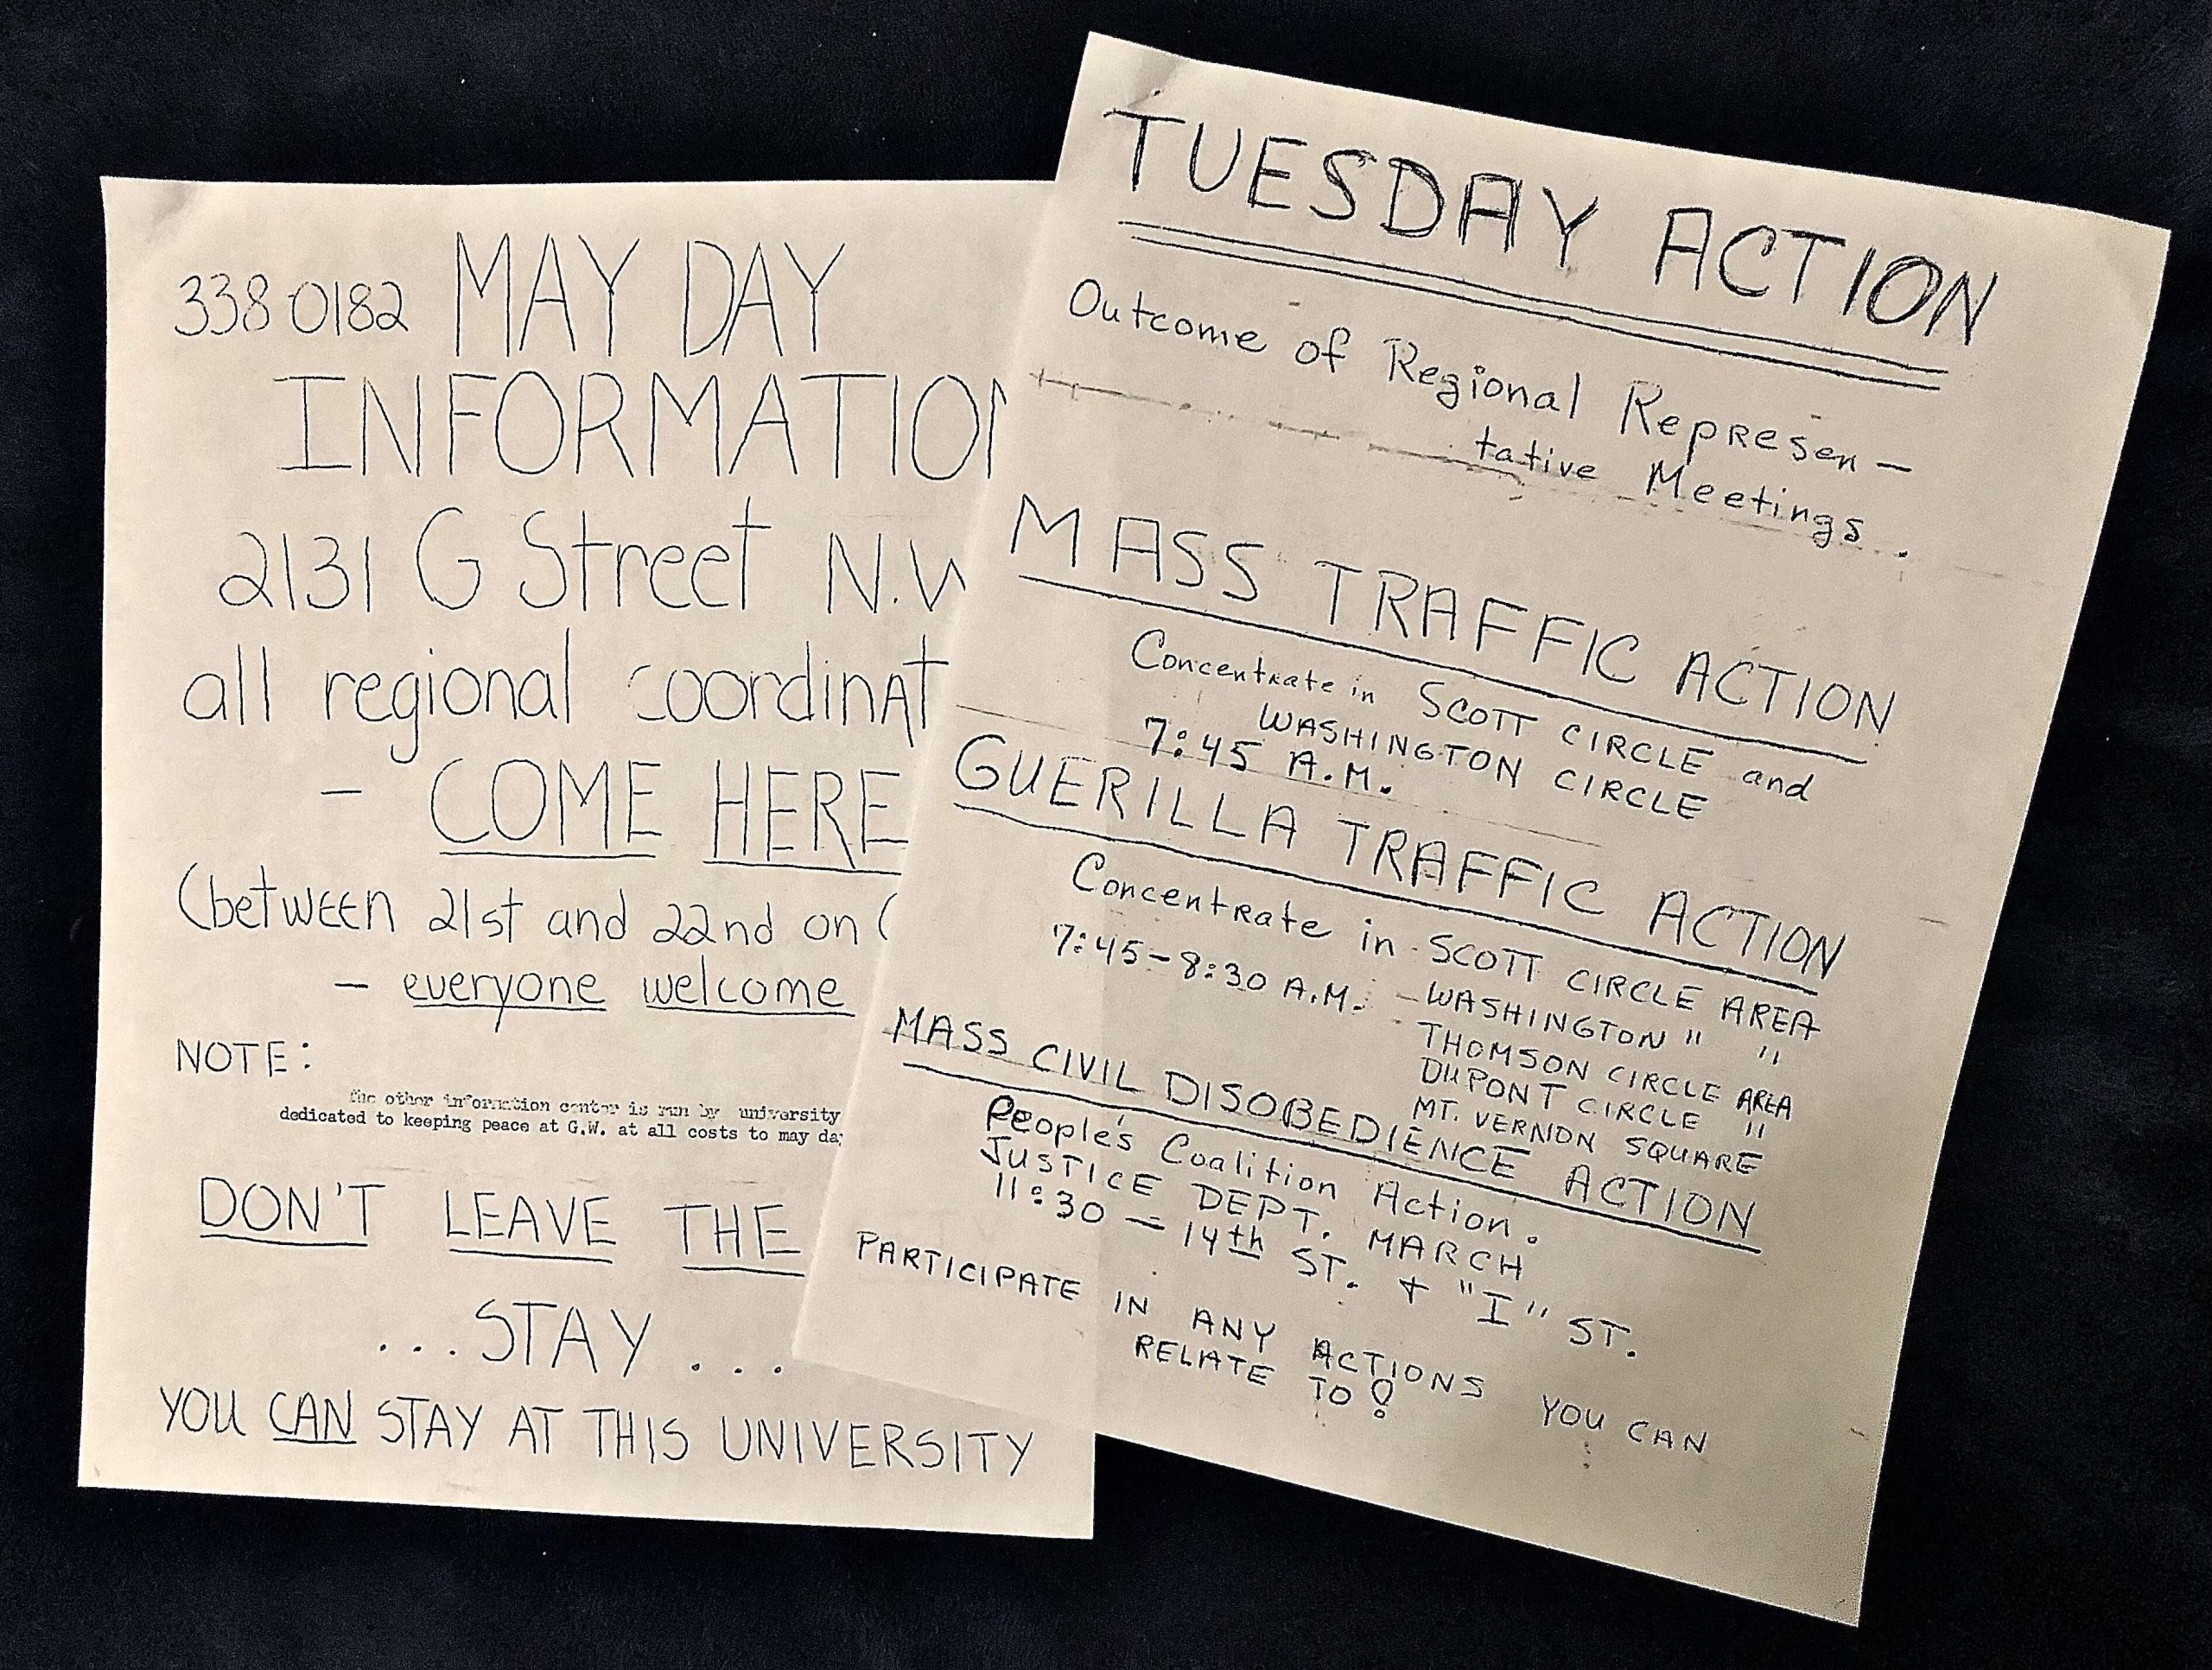 338 0182 MAY DAY
INFORMATION
2131 G Street N.W
all regional coordinat
- COME HERE
(between 21st and 22nd on
- everyone welcome
NOTE:
The other information center is run by university
dedicated to keeping peace at G.W. at all costs to may day
DON'T LEAVE THE
...STAY...
YOU CAN STAY AT THIS UNIVERSITY
TUESDAY ACTION
Outcome of Regional Represen-
tative Meetings.
MASS TRAFFIC ACTION
Concentrate in SCOTT CIRCLE and
WASHINGTON CIRCLE
7:45 A.M.
GUERILLA TRAFFIC ACTION
Concentrate in SCOTT CIRCLE AREA
7:45-8:30 A.M. - WASHINGTON " "
THOMSON CIRCLE AREA
DUPONT CIRCLE "
MT. VERNON SQUARE
MASS CIVIL DISOBEDIENCE ACTION
People's Coalition Action.
JUSTICE DEPT. MARCH
11:30 - 14th ST. + "I" ST.
PARTICIPATE IN ANY ACTIONS YOU CAN
RELATE TO!